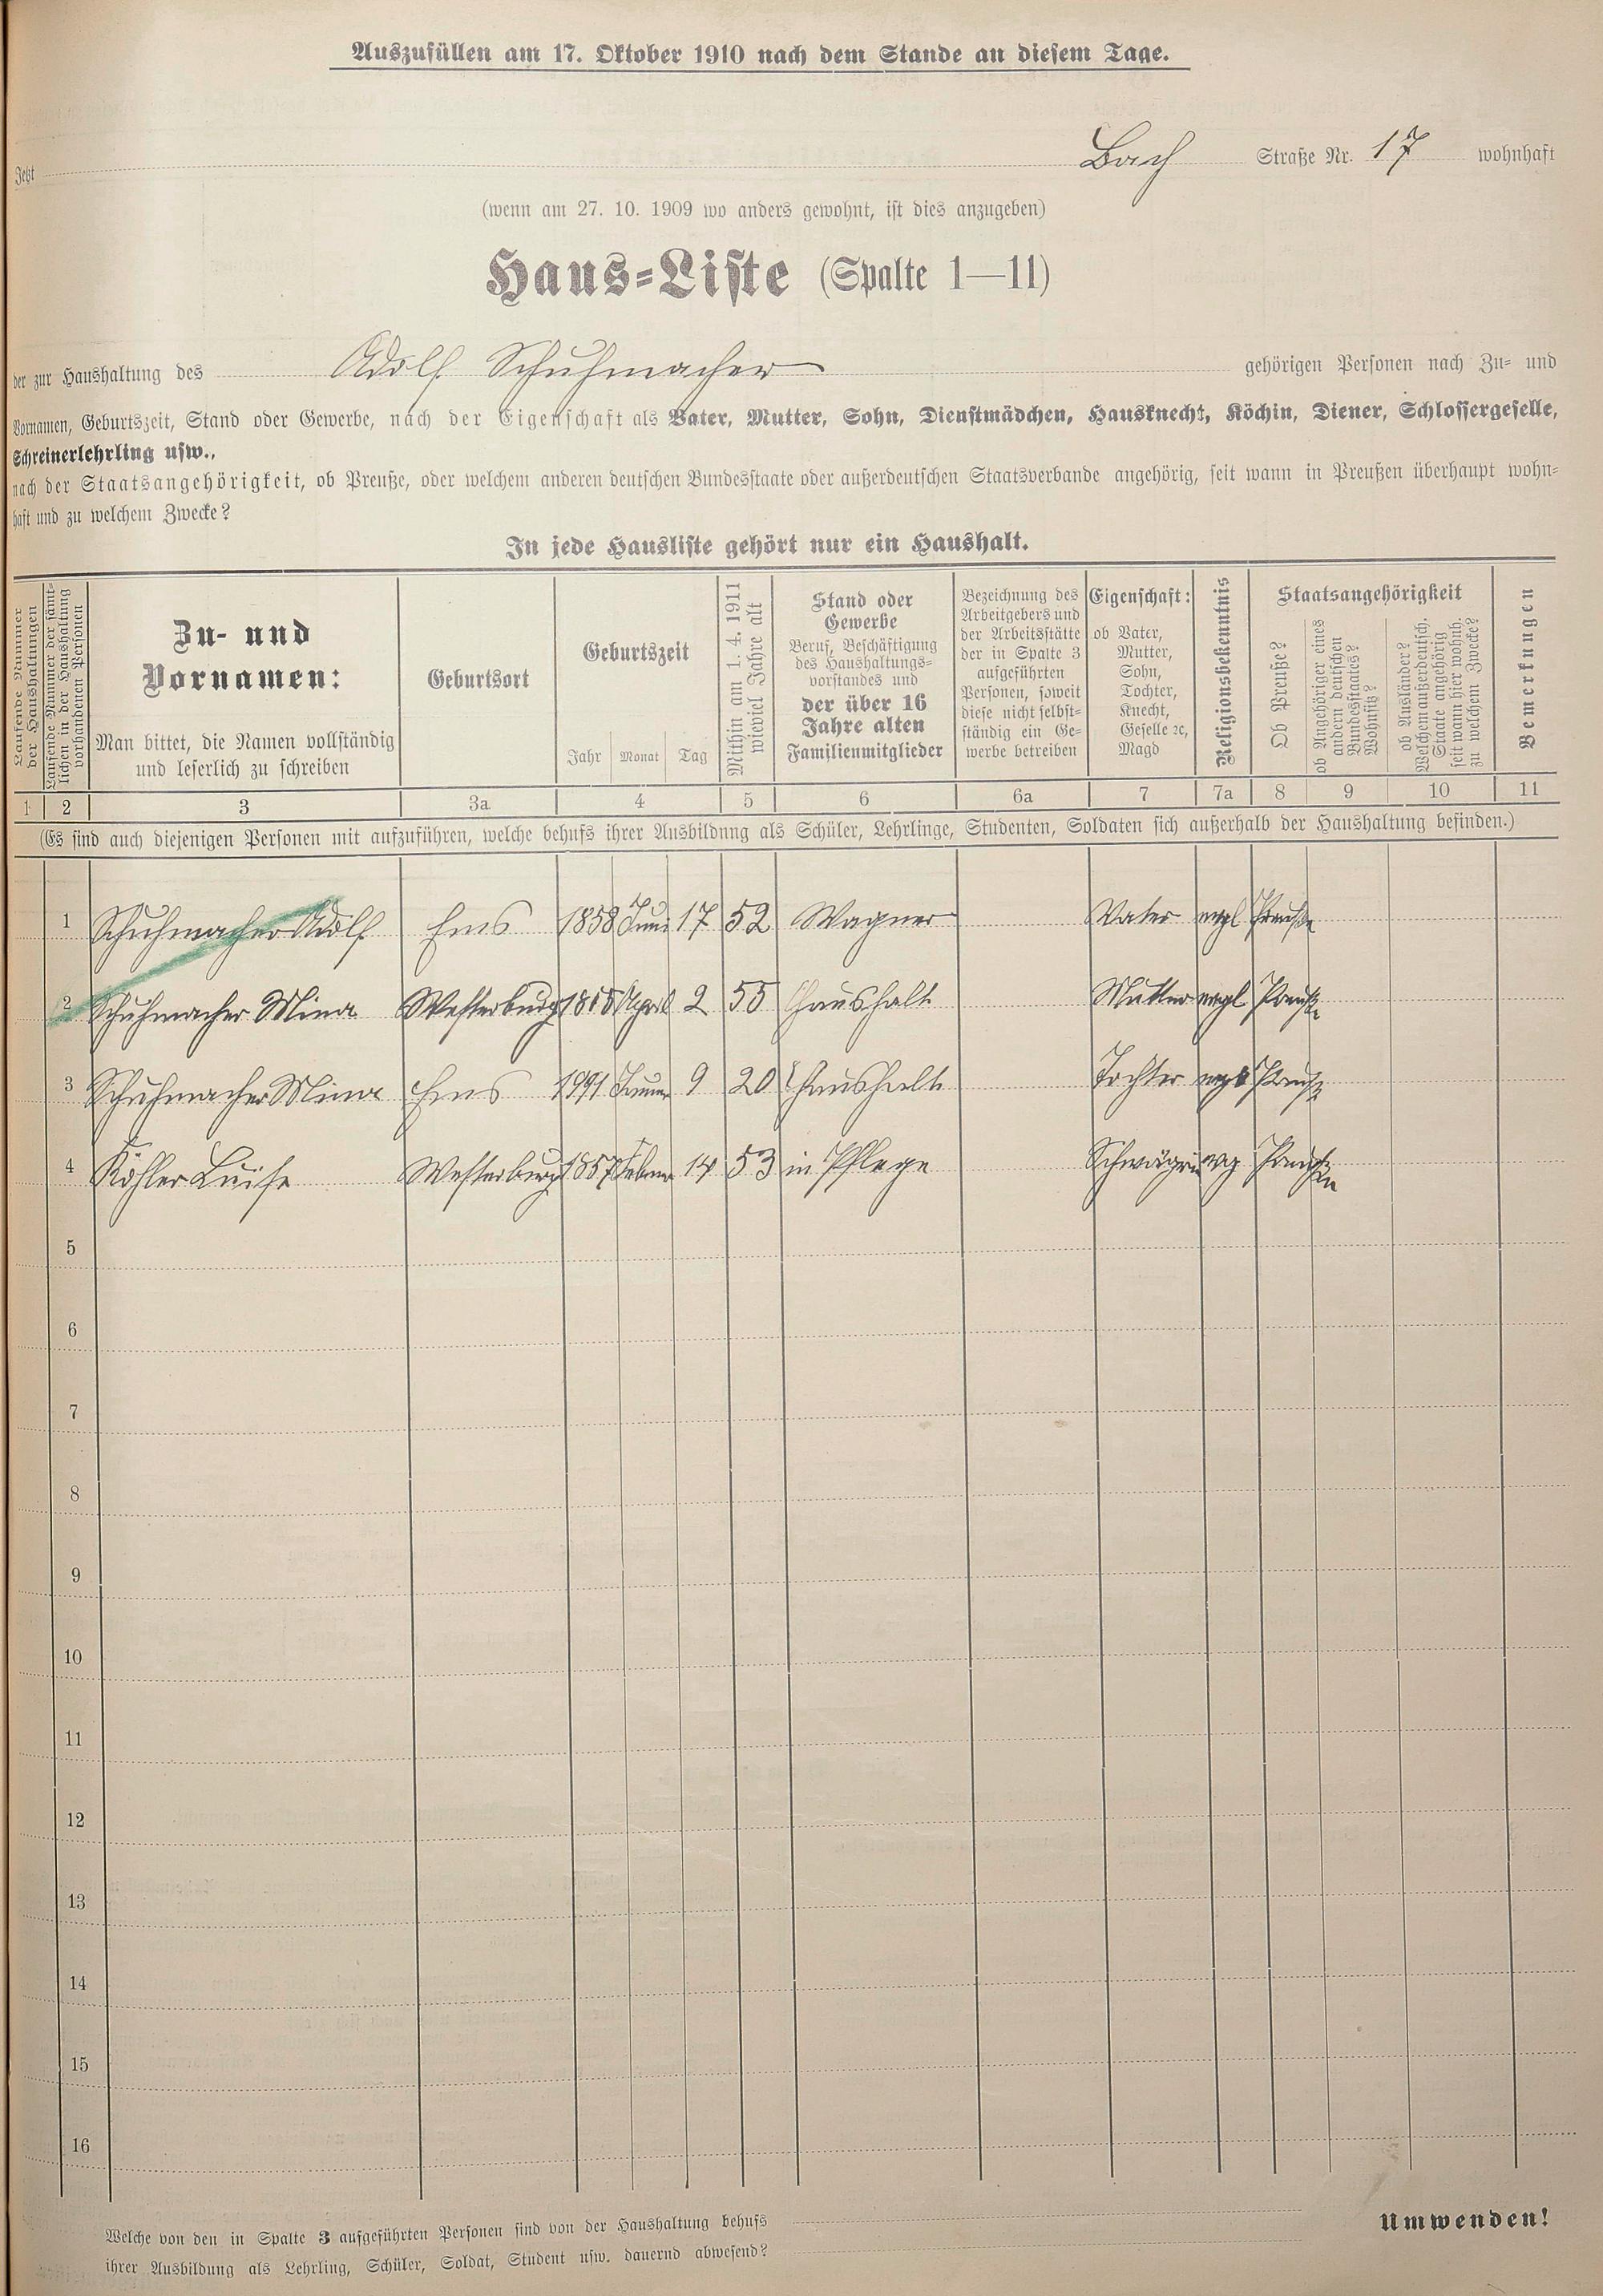 Auszufüllen am 17. Oktober 1910 nach dem Stande an diesem Tage.
Jetzt Bach Straße Nr. 17 wohnhaft
(wenn am 27. 10. 1909 wo anders gewohnt, ist dies anzugeben)
Haus-Liste (Spalte 1—11)
der zur Haushaltung des Adolf Schuhmacher gehörigen Personen nach Zu- und
Vornamen, Geburtszeit, Stand oder Gewerbe, nach der Eigenschaft als Vater, Mutter, Sohn, Dienstmädchen, Hausknecht, Köchin, Diener, Schlossergeselle,
Schreinerlehrling usw.,
nach der Staatsangehörigkeit, ob Preuße, oder welchem anderen deutschen Bundesstaate oder außerdeutschen Staatsverbande angehörig, seit wann in Preußen überhaupt wohn-
haft und zu welchem Zwecke?
In jede Hausliste gehört nur ein Haushalt.
Laufende Nummer
der Haushaltungen
Laufende Nummer der sämt-
lichen in der Haushaltung
vorhandenen Personen
Zu- und
Vornamen:
Man bittet, die Namen vollständig
und leserlich zu schreiben
Geburtsort
Geburtszeit
Jahr Monat Tag
Mithin am 1. 4. 1911
wieviel Jahre alt
Stand oder
Gewerbe
Beruf, Beschäftigung
des Haushaltungs-
vorstandes und
der über 16
Jahre alten
Familienmitglieder
Bezeichnung des
Arbeitgebers und
der Arbeitsstätte
der in Spalte 3
aufgeführten
Personen, soweit
diese nicht selbst-
ständig ein Ge-
werbe betreiben
Eigenschaft:
ob Vater,
Mutter,
Sohn,
Tochter,
Knecht,
Geselle ꝛc,
Magd
Religionsbekenntnis
Staatsangehörigkeit
Ob Preuße?
ob Angehöriger eines
andern deutschen
Bundesstaates?
Wohnsitz?
ob Ausländer?
Welchem außerdeutsch.
Staate angehörig
seit wann hier wohnh.
zu welchem Zwecke?
Bemerkungen
1 2 3 3a 4 5 6 6a 7 7a 8 9 10 11
(Es sind auch diejenigen Personen mit aufzuführen, welche behufs ihrer Ausbildung als Schüler, Lehrlinge, Studenten, Soldaten sich außerhalb der Haushaltung befinden.)
1 Schuhmacher Adolf Ems 1858 Juni 17 52 Wagner Vater evgl Preuße
2 Schuhmacher Mina Westerburg April 2 55 Haushalt Mutter evgl Preuße
3 Schuhmacher Mina Ems 1991 Januar 9 20 Haushalt Tochter evgl Preuße
4 Köhler Luise Westerburg 1857 Februar 14 53 in Pflege Schwägerin evg
5
6
7
8
9
10
11
12
13
14
15
16
Welche von den in Spalte 3 aufgeführten Personen sind von der Haushaltung behufs
ihrer Ausbildung als Lehrling, Schüler, Soldat, Student usw. dauernd abwesend?
Umwenden!